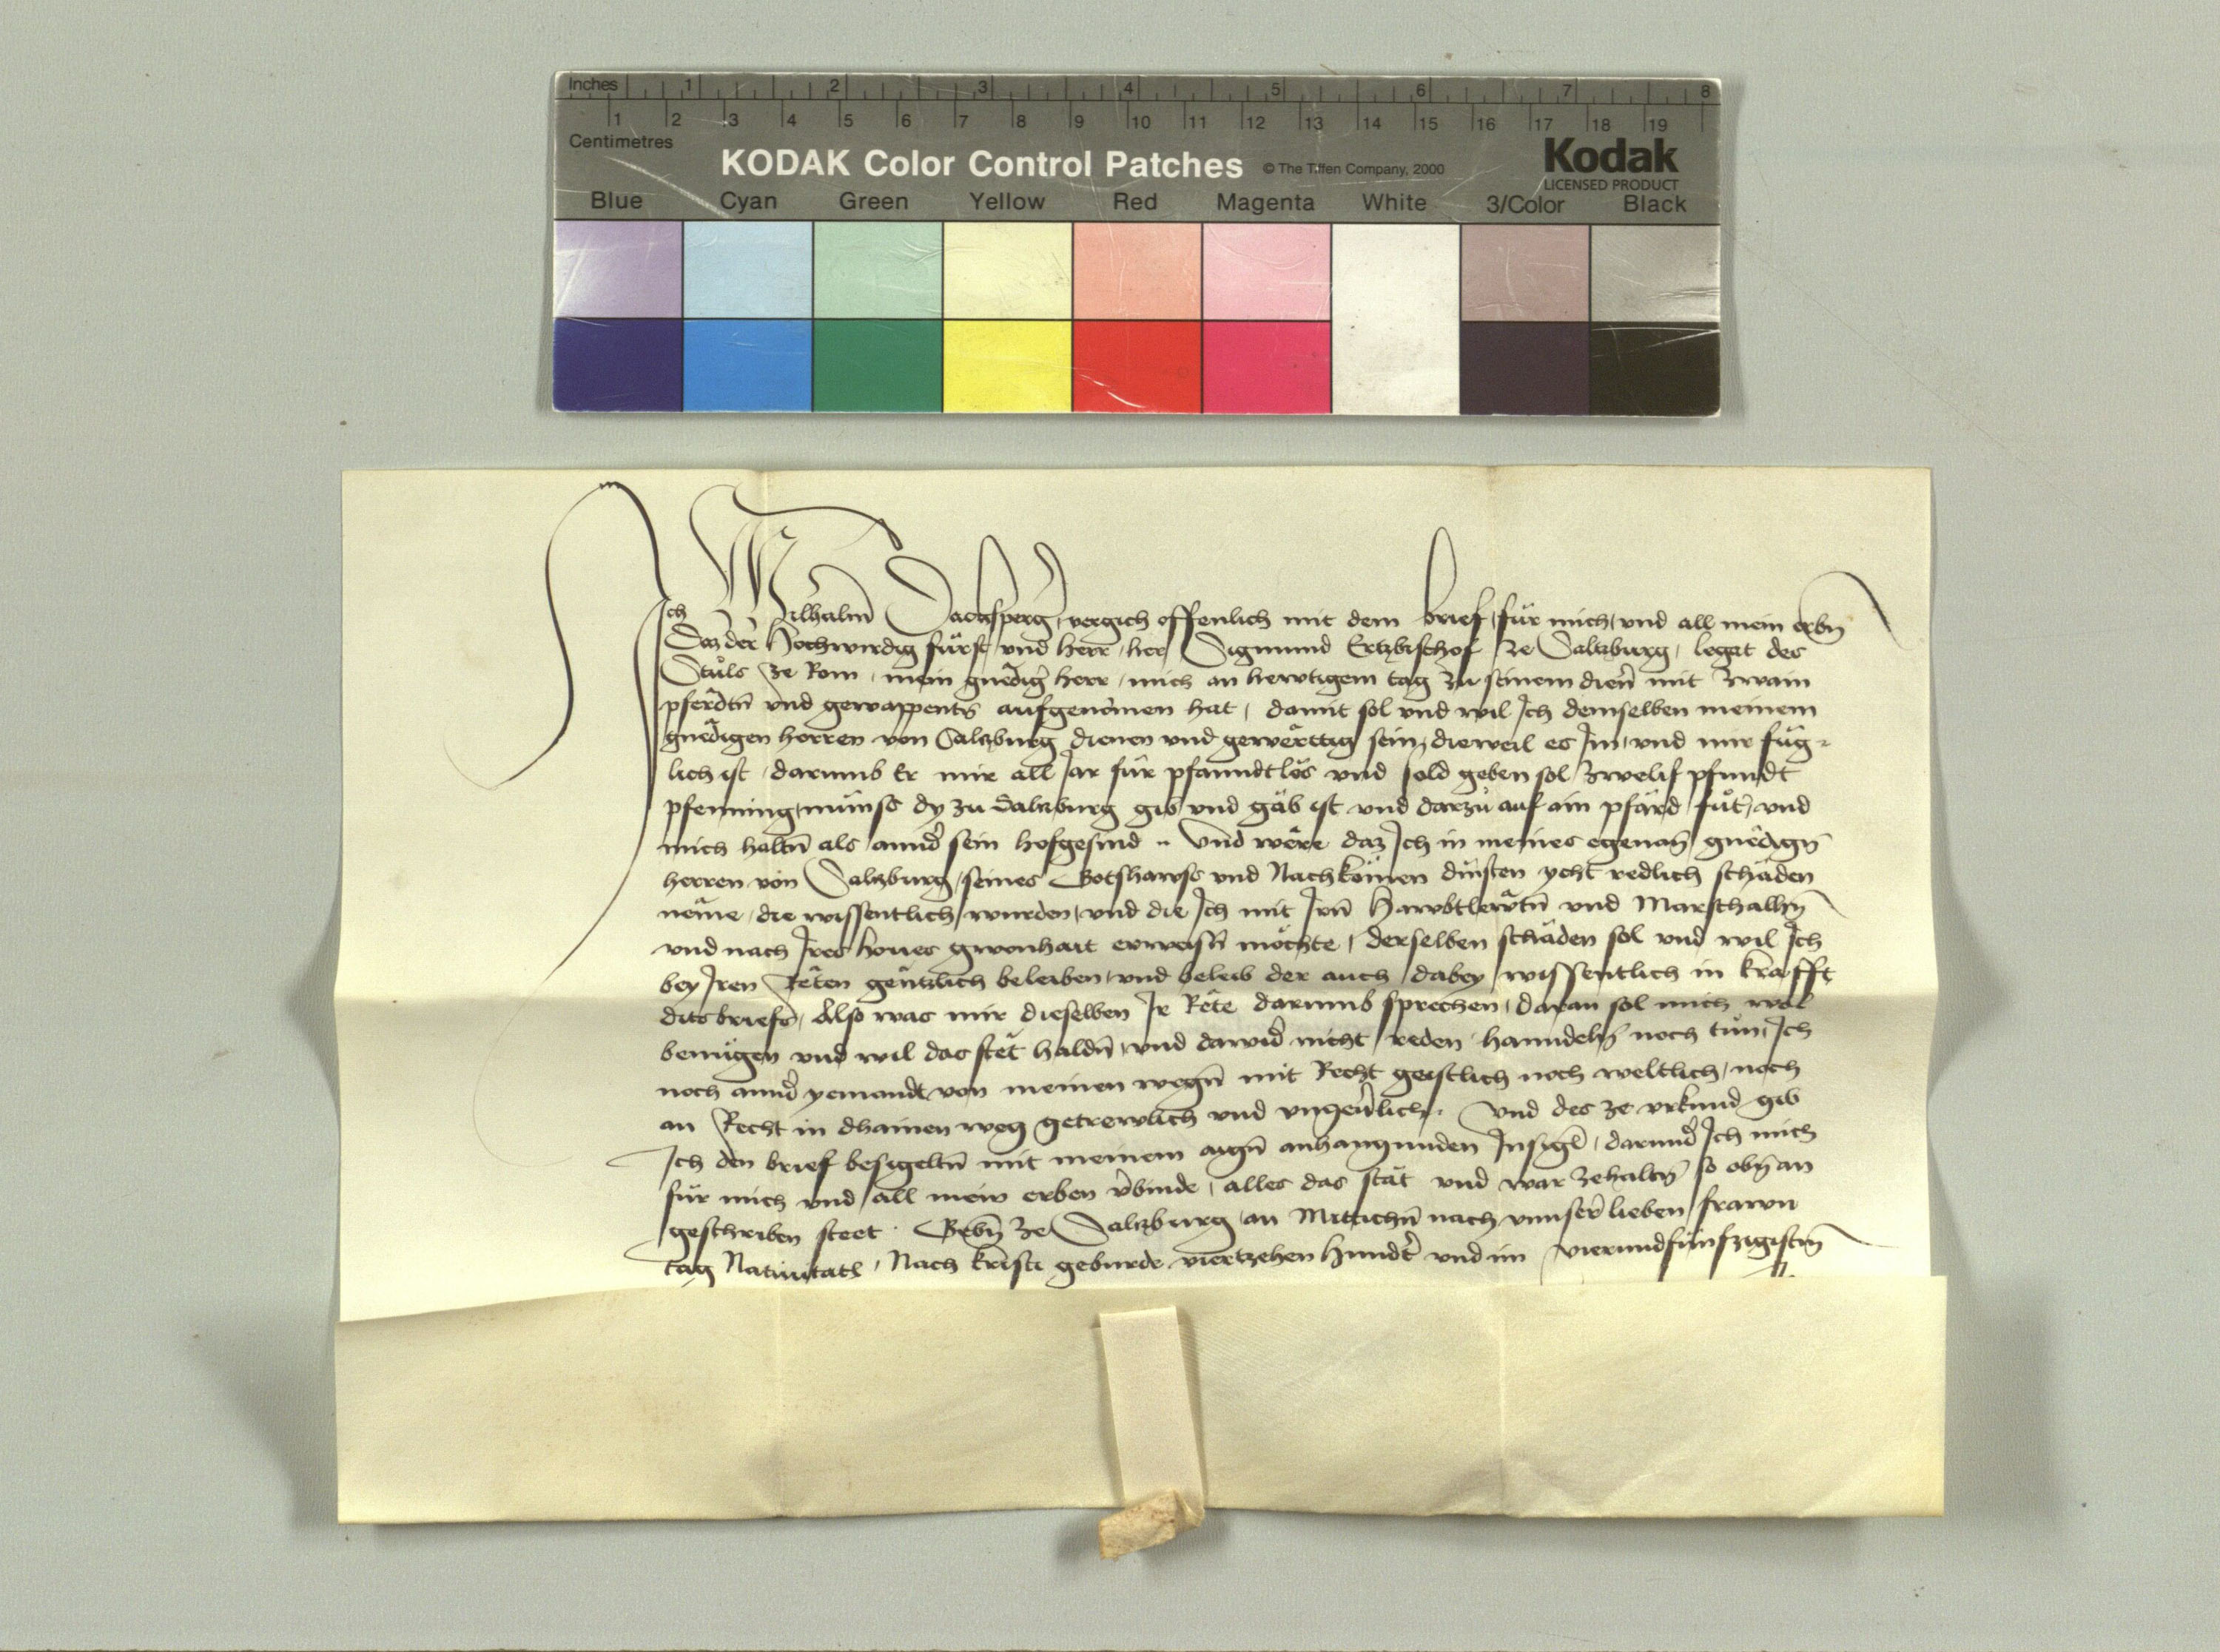 Inches 1 2 3 4 5 6 7 8
1 2 3 4 5 6 7 8 9 10 11 12 13 14 15 16 17 18 19
Centimetres
KODAK Color Control Patches © The Tiffen Company, 2000 Kodak
LICENSED PRODUCT
Blue Cyan Green Yellow Red Magenta White 3/Color Black
Ich Wilhalm̄ vergich offenlich mit dem brief, für mich, vnd all mein erbn̄
Daz der Hochwirdig fürst vnd herr, her Sigmund Ertzbischof ze Saltzburg, legat des
Stůls ze Rom, mein gnëdiger herr, mich an hewtigem tag zu seinem dien̄ mit zwain
pferdtn̄ vnd gewappents aufgenomen hat, damit sol vnd wil Ich demselben meinem
gnëdigen herren von Saltzburg dienen vnd gewërttig sein, dieweil es Im, vnd mir füg-
lich ist, darumb Er mir all Jar für pfanndtlös vnd sold geben sol zwelif pfundt
pfenning, münss dy zu Saltzburg gib vnd gäb ist vnd darzů auf ain pfärd fůt̄, vnd
mich haltn̄ als annd̄ sein hofgesind .. Vnd wëre daz Ich in meines egenan̄ gnëdign̄
herren von Saltzburg, seines Gotshawss vnd Nachkömen dinsten ycht redlich schäden
nëme, die wissentlich wurden, vnd die Ich mit Irn̄ Hawbtlewtn̄ vnd Marschalhn̄
vnd nach Ires houes gwonhait erweisn̄ möchte, derselben schäden sol vnd wil Ich
bey Iren Rëten gëntzlich beleiben, vnd beleib der auch dabey wissentlich in krafft
dits briefs, Also was mir dieselben Ir Rëte darumb sprechen, daran sol mich wol
benügen vnd wil das stët haldn̄, vnd dawid̄ nicht reden hanndeln̄ noch tůn, Ich
noch annd̄ yemandt von meinen wegn̄ mit Recht geistlich noch weltlich, noch
an Recht in dhainen weg getrewlich vnd vngeu̇lich. Vnd des ze vrkund gib
Ich den brief besigeltn̄ mit meinem aign̄ anhangunden Insigl̄, darund̄ Ich mich
für mich vnd all mein erben v̄binde, alles das stät vnd war zehaltn̄ so obn̄ an
geschriben steet. Gebn̄ ze Saltzburg an Mittichn̄ nach vnnser̄ lieben frawn
tag Natiuitatis, Nach kristi geburde viertzehen Hundt̄ vnd im vierundfünfzigistn̄